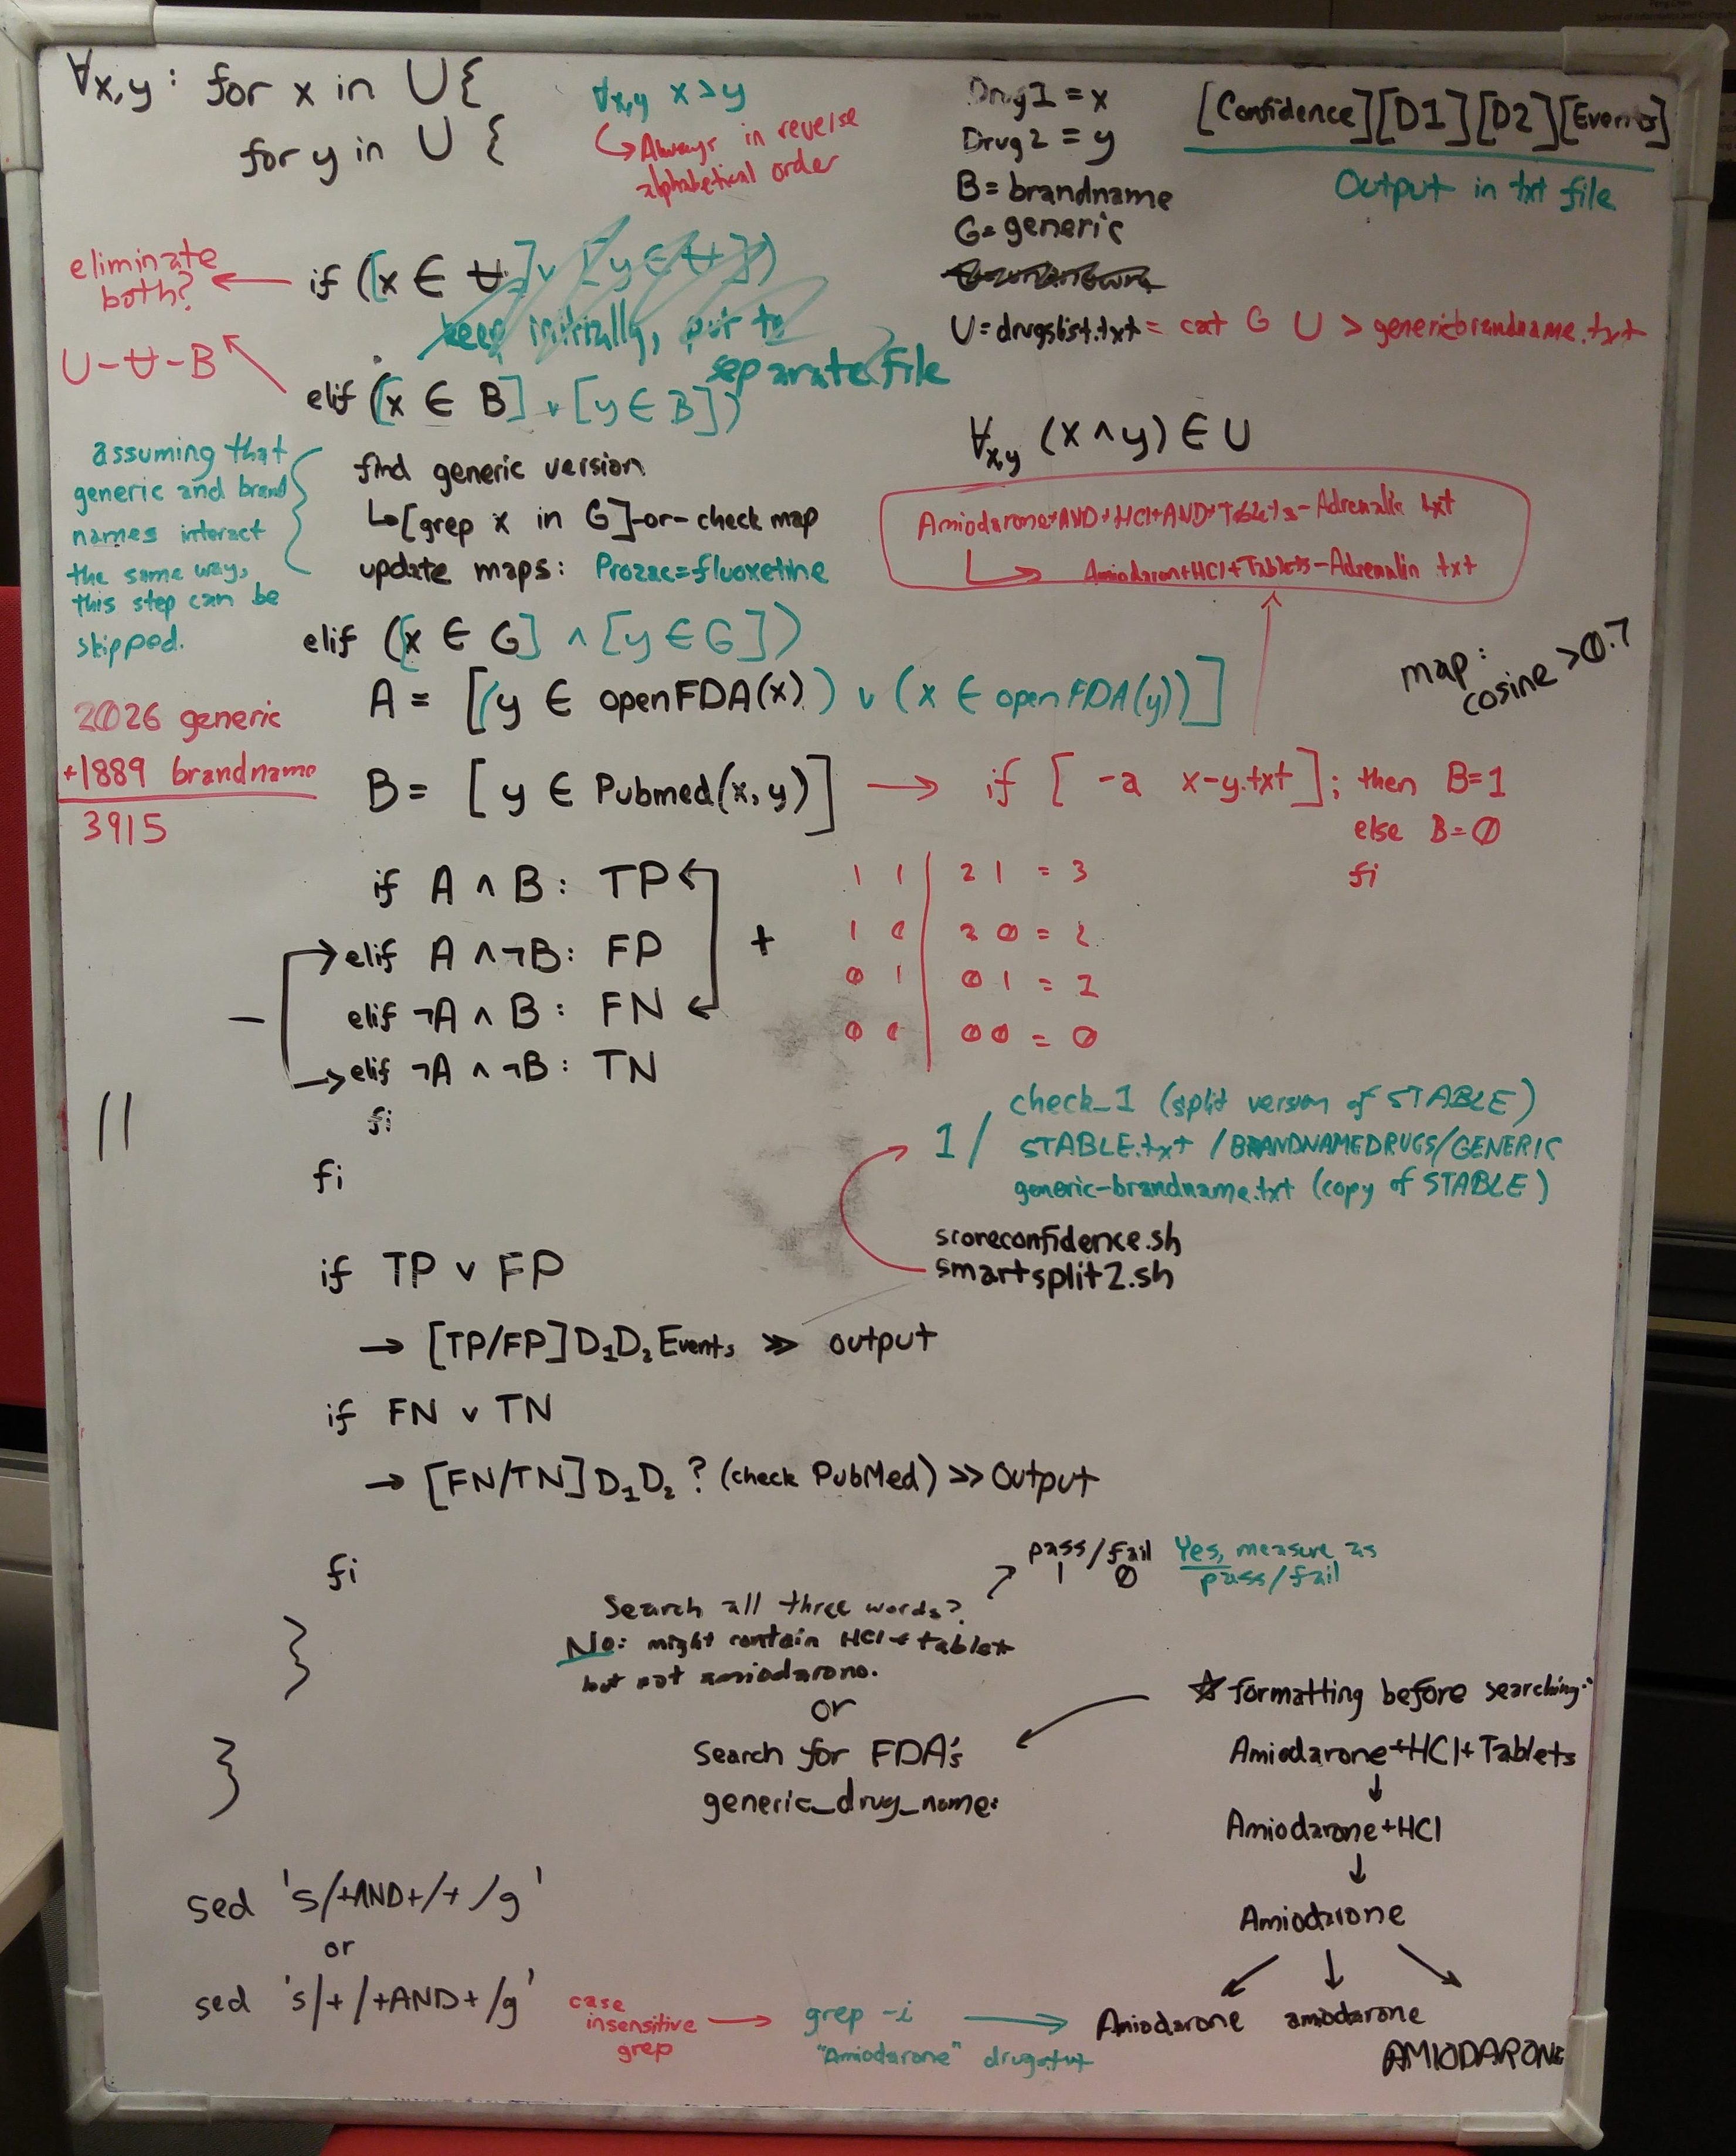 ∀x,y: for x in U{
for y in U {
∀x,y x>y
↳Always in reverse
alphabetical order
Drug1 = x
Drug2 = y
B=brandname
G=generic
U=drugslist.txt = cat G U > genericbrandname.txt
[Confidence][D1][D2][Events]
Output in txt file
eliminate
both?
U-U-B
if ([x ∈ U] v [y ∈ U])
keep initially, put to
separate file
elif ([x ∈ B] v [y ∈ B])
assuming that
generic and brand
names interact
the same way,
this step can be
skipped.
find generic version
↳[grep x in G]-or-check map
update maps: Prozac=fluoxetine
∀x,y (x∧y) ∈ U
Amiodarone+AND+HCl+AND+Tablets-Adrenalin.txt
Amiodaron+HCl+Tablets-Adrenalin.txt
elif ([x ∈ G] ∧ [y ∈ G])
A = [(y ∈ openFDA(x)) v (x ∈ openFDA(y))]
map:
cosine >0.7
2026 generic
+1889 brandname
3915
B= [y ∈ Pubmed(x,y)] → if [ -a x-y.txt ]; then B=1
else B=0
fi
if A ∧ B: TP
elif A ∧ ¬B: FP
elif ¬A ∧ B: FN
elif ¬A ∧ ¬B: TN
fi
+
-
1 1 | 2 1 = 3
1 0 | 2 0 = 2
0 1 | 0 1 = 1
0 0 | 0 0 = 0
fi
1/
check_1 (split version of STABLE)
STABLE.txt /BRANDNAMEDRUGS/GENERIC
generic-brandname.txt (copy of STABLE)
scoreconfidence.sh
smartsplit2.sh
if TP v FP
→ [TP/FP]D₁D₂Events >> output
if FN v TN
→ [FN/TN]D₁D₂? (check PubMed) >> Output
fi
}
}
pass/fail
1 0
Yes, measure as
pass/fail
Search all three words?
No: might contain HCl+tablet
but not amiodarone.
or
Search for FDA's
generic_drug_name:
☆formatting before searching:
Amiodarone+HCl+Tablets
↓
Amiodarone+HCl
↓
Amiodarone
sed 's/+AND+/+/g'
or
sed 's/+/+AND+/g'
case
insensitive
grep
→ grep -i
"Amiodarone" drug.txt
→ Amiodarone amiodarone
AMIODARONE